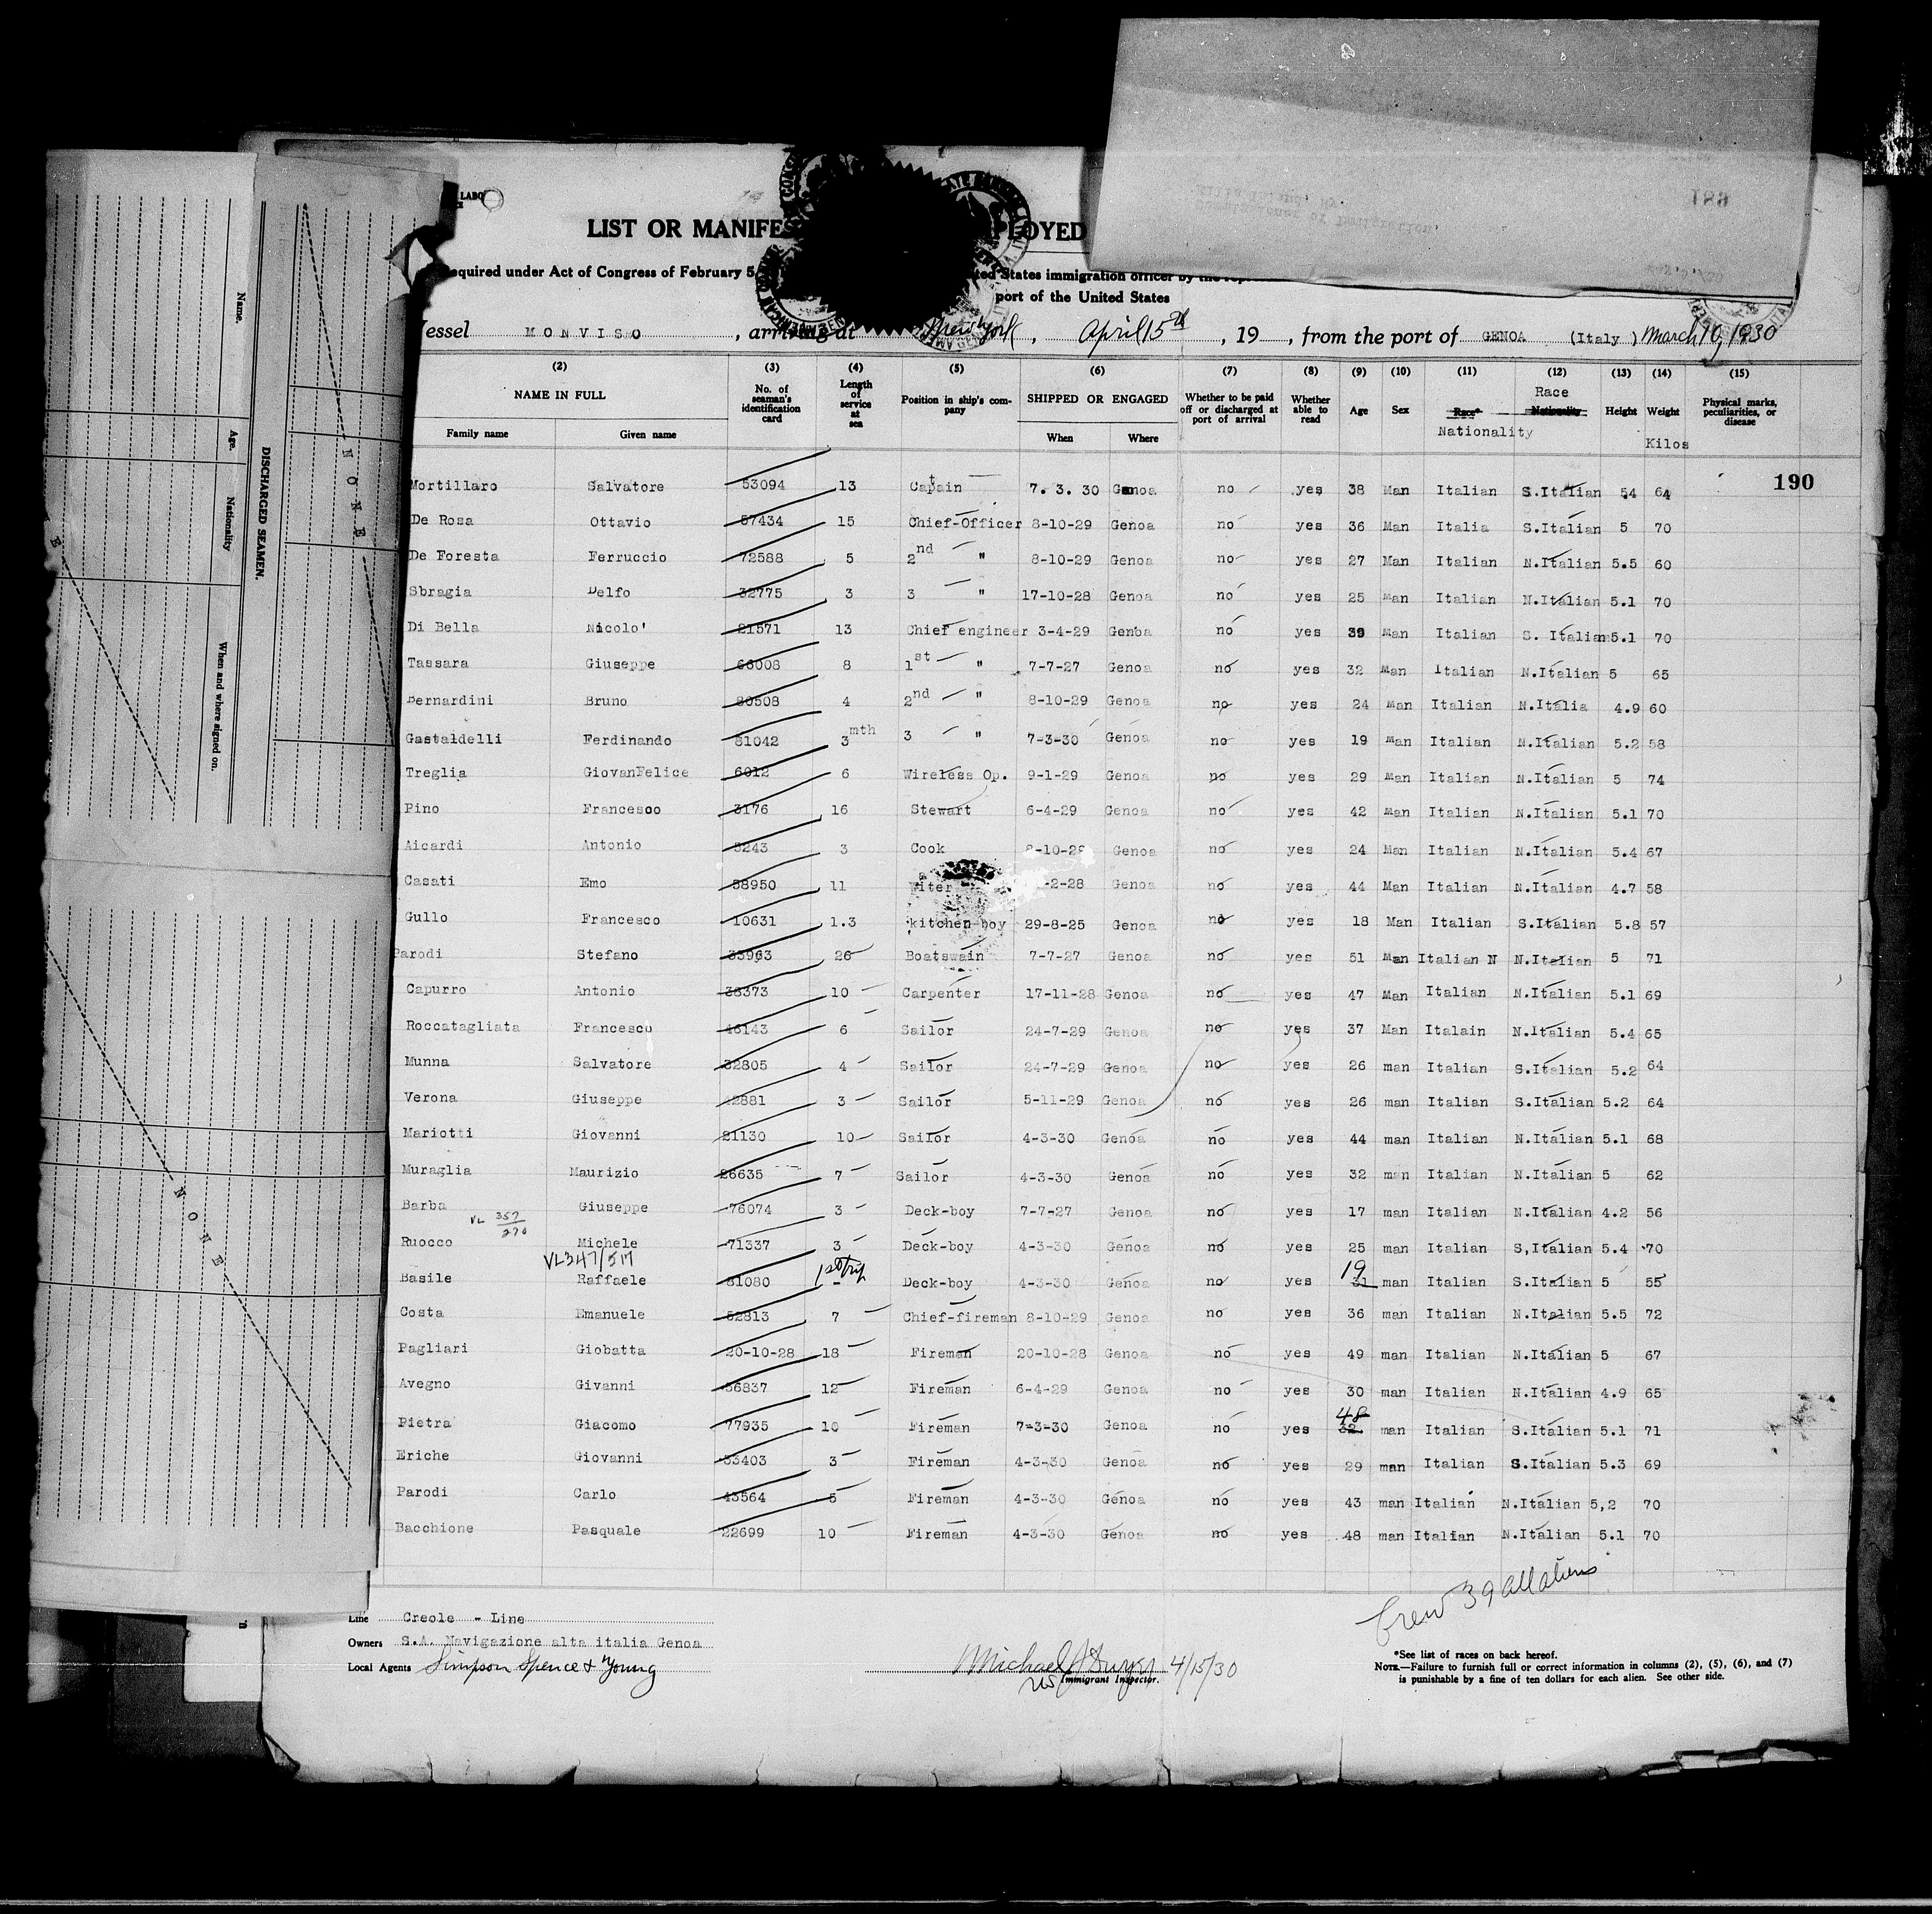 LABO
LIST OR MANIFE PLOYED
equired under Act of Congress of February 5 ted States immigration officer by the
port of the United States
Vessel MONVISO , arriving at New York , April 15th , 19 , from the port of GENOA (Italy) March 10, 1930
(2) (3) (4) (5) (6) (7) (8) (9) (10) (11) (12) (13) (14) (15)
NAME IN FULL No. of seaman's identification card Length of service at sea Position in ship's company SHIPPED OR ENGAGED Whether to be paid off or discharged at port of arrival Whether able to read Age Sex Race* Nationality Race Nationality Height Weight Kilos Physical marks, peculiarities, or disease
Family name Given name When Where
190
Mortillaro Salvatore 53094 13 Captain 7. 3. 30 Genoa no yes 38 Man Italian S.Italian 54 64
De Rosa Ottavio 57434 15 Chief-Officer 8-10-29 Genoa no yes 36 Man Italia S.Italian 5 70
De Foresta Ferruccio 72588 5 2nd " 8-10-29 Genoa no yes 27 Man Italian N.Italian 5.5 60
Sbragia Delfo 32775 3 3 " 17-10-28 Genoa no yes 25 man Italian N.Italian 5.1 70
Di Bella Nicolo' 21571 13 Chief engineer 3-4-29 Genoa no yes 39 Man Italian S. Italian 5.1 70
Tassara Giuseppe 66008 8 1st " 7-7-27 Genoa no yes 32 Man Italian N.Italian 5 65
Bernardini Bruno 80508 4 2nd " 8-10-29 Genoa no yes 24 man Italian N.Italia 4.9 60
Gastaldelli Ferdinando 81042 3mth 3 " 7-3-30 Genoa no yes 19 man Italian N.Italian 5.2 58
Treglia GiovanFelice 6012 6 Wireless Op. 9-1-29 Genoa no yes 29 Man Italian N.Italian 5 74
Pino Francesco 3176 16 Stewart 6-4-29 Genoa no yes 42 man Italian N.Italian 5.1 70
Aicardi Antonio 5243 3 Cook 8-10-28 Genoa no yes 24 Man Italian N.Italian 5.4 67
Casati Emo 58950 11 Witer -2-28 Genoa no yes 44 Man Italian N.Italian 4.7 58
Gullo Francesco 10631 1.3 kitchen-boy 29-8-25 Genoa no yes 18 Man Italian S.Italian 5.8 57
Parodi Stefano 33963 26 Boatswain 7-7-27 Genoa no yes 51 Man Italian N N.Italian 5 71
Capurro Antonio 38373 10 Carpenter 17-11-28 Genoa no yes 47 Man Italian N.Italian 5.1 69
Roccatagliata Francesco 46143 6 Sailor 24-7-29 Genoa no yes 37 Man Italain N.Italian 5.4 65
Munna Salvatore 32805 4 Sailor 24-7-29 Genoa no yes 26 man Italian S.Italian 5.2 64
Verona Giuseppe 42881 3 Sailor 5-11-29 Genoa no yes 26 man Italian S.Italian 5.2 64
Mariotti Giovanni 21130 10 Sailor 4-3-30 Genoa no yes 44 man Italian N.Italian 5.1 68
Muraglia Maurizio 26635 7 Sailor 4-3-30 Genoa no yes 32 man Italian N.Italian 5 62
Barba Giuseppe 76074 3 Deck-boy 7-7-27 Genoa no yes 17 man Italian N.Italian 4.2 56
VL 357/270
Ruocco Michele 71337 3 Deck-boy 4-3-30 Genoa no yes 25 man Italian S,Italian 5.4 70
VL347/517
Basile Raffaele 81080 1st trip - Deck-boy 4-3-30 Genoa no yes 19 31 man Italian S.Italian 5 55
Costa Emanuele 52813 7 Chief-fireman 8-10-29 Genoa no yes 36 man Italian N.Italian 5.5 72
Pagliari Giobatta 20-10-28 18 Fireman 20-10-28 Genoa no yes 49 man Italian N.Italian 5 67
Avegno Givanni 36837 12 Fireman 6-4-29 Genoa no yes 30 man Italian N.Italian 4.9 65
Pietra Giacomo 77935 10 Fireman 7-3-30 Genoa no yes 48 32 man Italian S.Italian 5.1 71
Eriche Giovanni 33403 3 Fireman 4-3-30 Genoa no yes 29 man Italian S.Italian 5.3 69
Parodi Carlo 43564 5 Fireman 4-3-30 Genoa no yes 43 man Italian N.Italian 5,2 70
Bacchione Pasquale 22699 10 Fireman 4-3-30 Genoa no yes 48 man Italian N.Italian 5.1 70
Crew 39 all aliens
Line Creole - Line
Owners S.A. Navigazione alta italia Genoa
Local Agents Simpson Spence & Young
Michael 4/15/30
US Immigrant Inspector.
*See list of races on back hereof.
NOTE.—Failure to furnish full or correct information in columns (2), (5), (6), and (7)
is punishable by a fine of ten dollars for each alien. See other side.
DISCHARGED SEAMEN.
Name.
Age.
Nationality
When and where signed on.
NONE
NONE
681